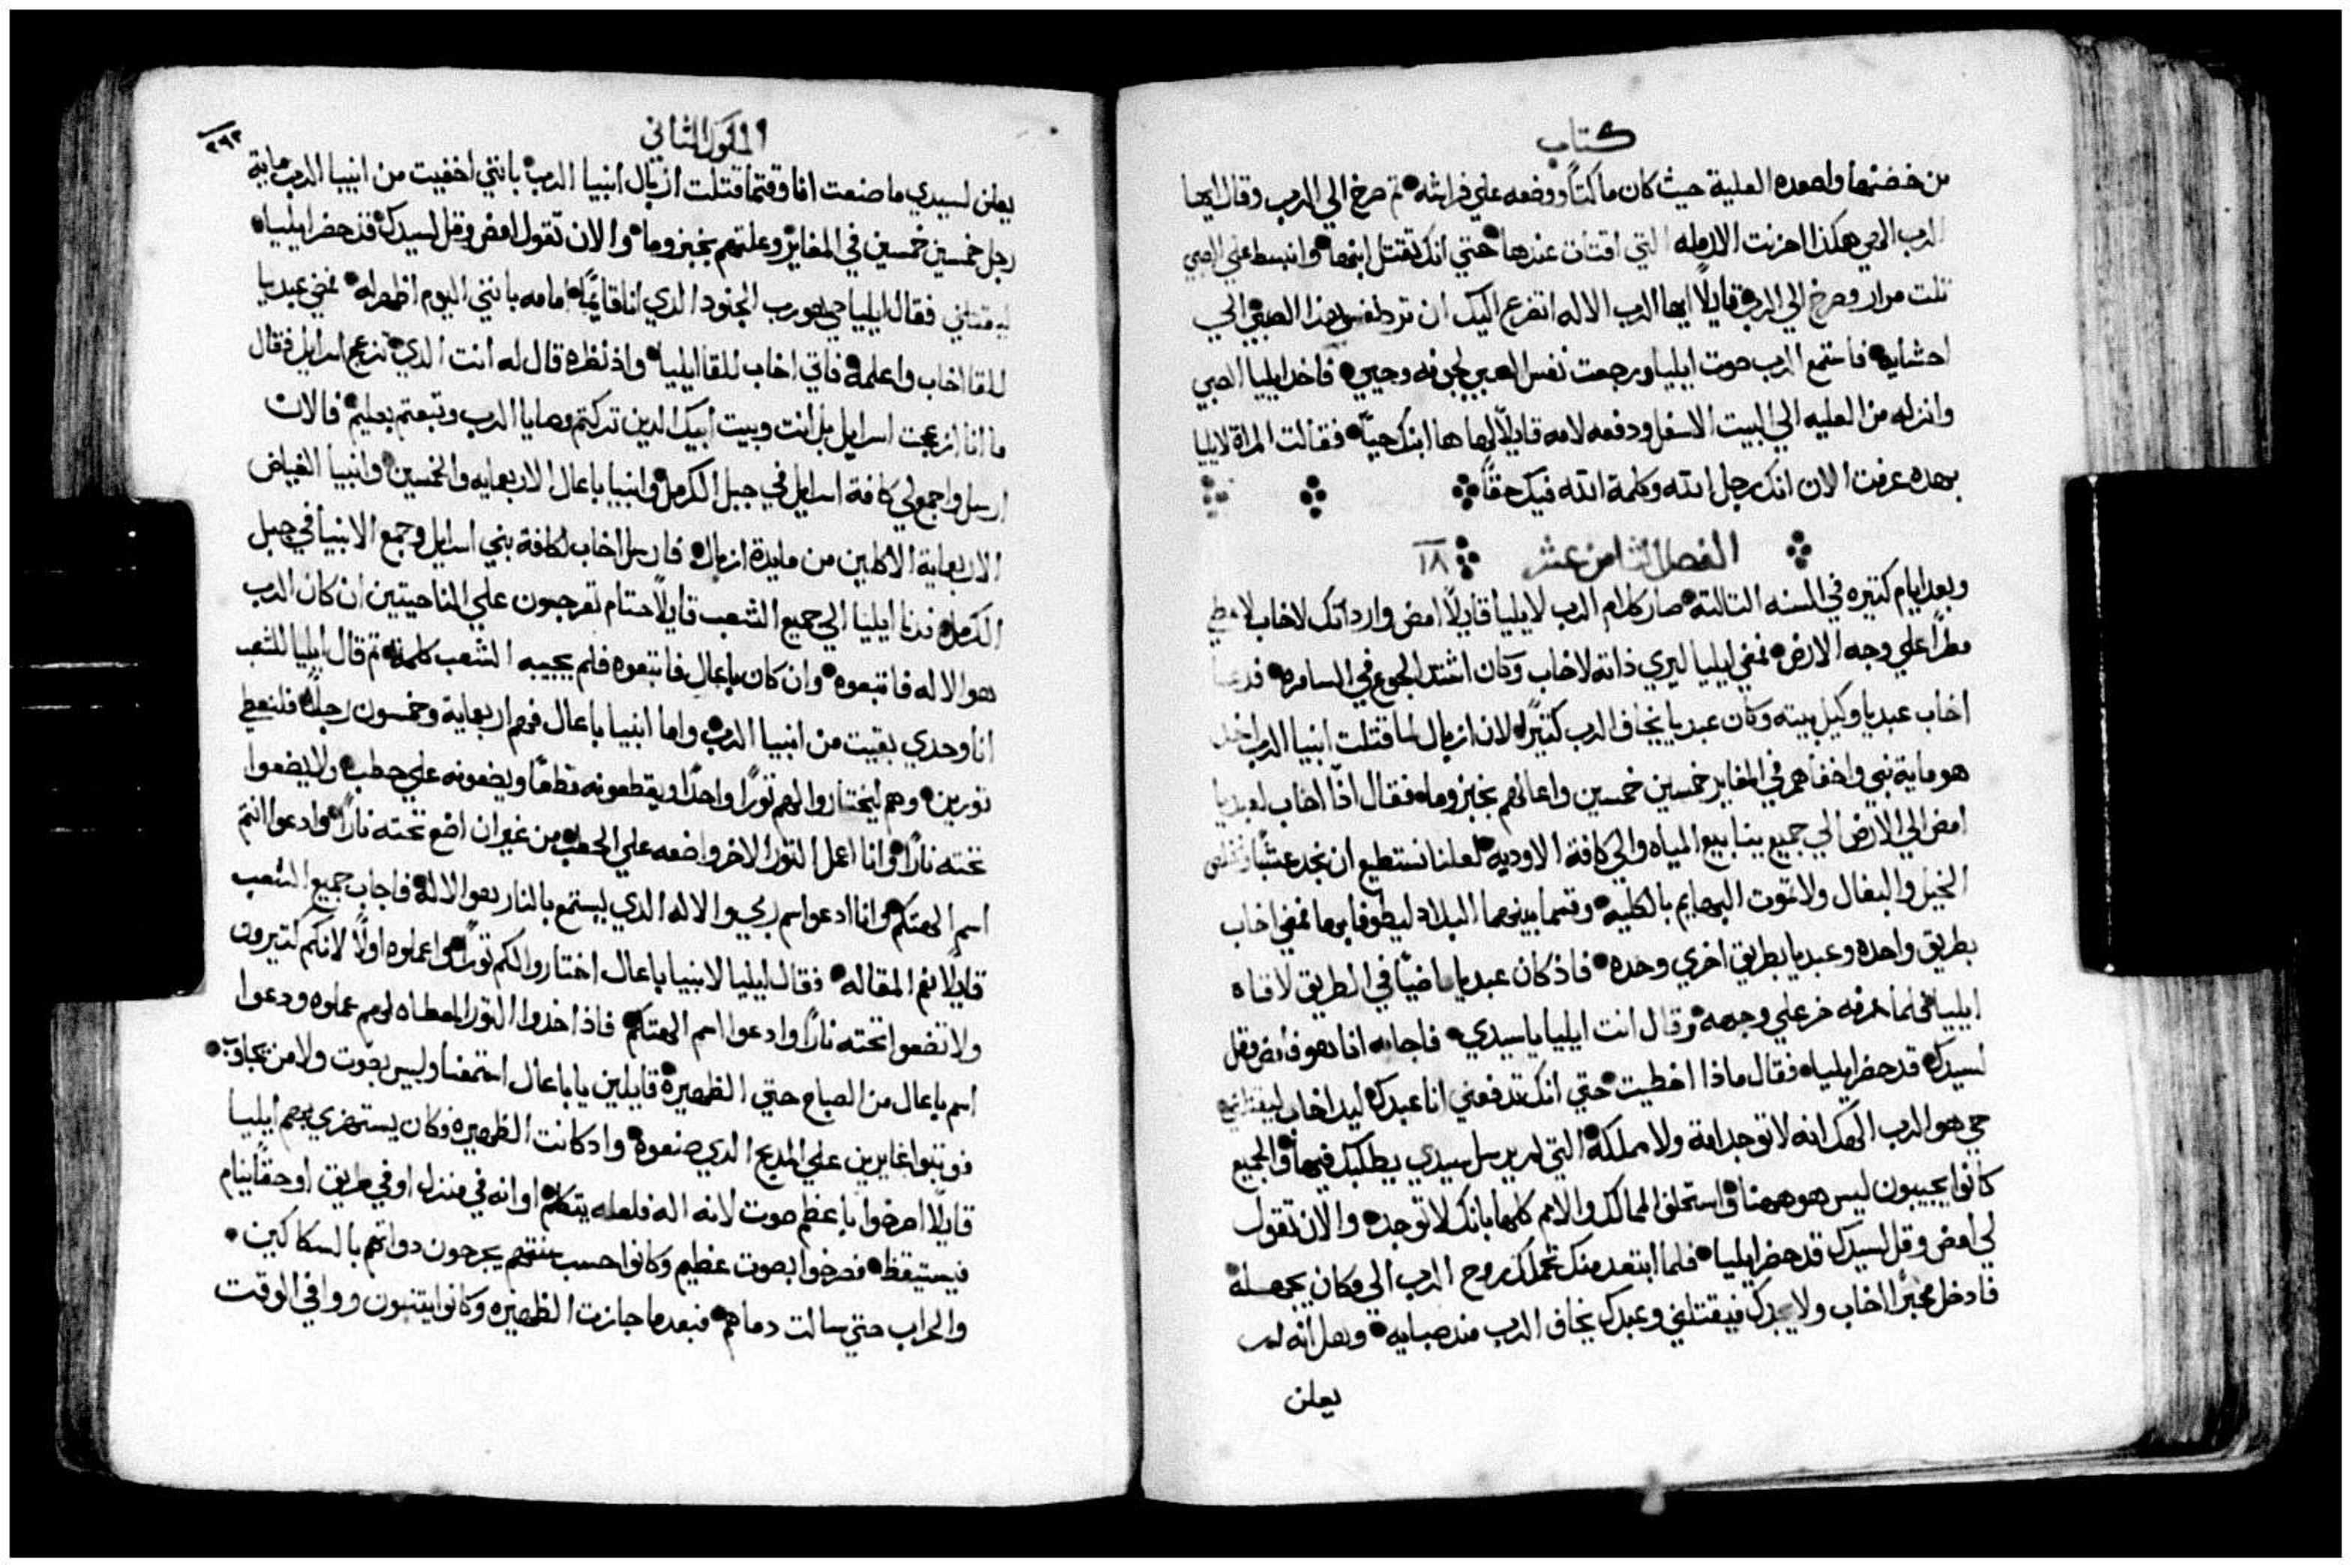 كتاب
من خضنها واصعده العلية حيث كان ماكثاً ووضعه علي فراشه ثم صرخ الي الرب وقال ايها
الرب الهي هكذا احزنت الارمله التي اقتات عندها حتي انك تقتل ابنها وانبسط علي الصبي
تلت مرار وصرخ الي الرب قايلاً ايها الرب الاله اتضرع اليك ان ترد نفس هذا الصبي الي
احشايه فاستمع الرب صوت ايليا ورجعت نفس الصبي لجوفه وحيي فاخذ ايليا الصبي
وانزله من العليه الي البيت الاسفل ودفعه لامه قايلاً لها ها ابنك حيّاً فقالت المراة لايليا
بهده عرفت الان انك رجل الله وكلمة الله فيك حقاً
الفصل الثامن عشر ١٨
وبعد ايام كتيره في السنه التالتة صار كلام الرب لايليا قايلاً امض وار داتك لاخاب لاعطي
مطراً علي وجه الارض فمضي ايليا ليري ذاته لاخاب وكان اشتد الجوع في السامره فدعا
اخاب عبديا وكيل بيته وكان عبديا يخاف الرب كتيراً لان ازبال لما قتلت انبيا الرب اخد
هو ماية نبي واخفاهم في المغاير خمسين خمسين واعالهم بخبز وما فقال اذاً اخاب لعبديا
امض الي الارض الي جميع ينابيع المياه والي كافة الاوديه لعلنا نستطيع ان نجد عشباً
الخيل والبغال ولا تموت البهايم بالكلية وقسما بينهما البلاد ليطوفا بها فمضي اخاب
بطريق واحده وعبديا بطريق اخري وحده فاذ كان عبديا ماضيّاً في الطريق لاقاه
ايليا فلما عرفه خر علي وجهه وقال انت ايليا ياسيدي فاجابه انا هو فامض وقل
لسيدك قد حضر ايليا فقال ماذا اخطيت حتي انك تدفعني انا عبدك ليد اخاب ليقتلني
حي هو الرب الهك انه لا توجد امة ولا مملكة التي لم يرسل سيدي يطلبك فيها والجميع
كانوا يجيبون ليس هو ههنا واستحلف الممالك والامم كلها بانك لا توجد والان تقول
لي امض وقل لسيدك قد حضر ايليا فلما ابتعد منك تحملك روح الرب الي مكان يجهله
فادخل مخبراً اخاب ولا يجدك فيقتلني وعبدك يخاف الرب مند صبايه وهل انه لم
يعلن
الملوك الثاني
٢٩٢
يعلن لسيدي ما صنعت انا وقتما قتلت ازبال انبيا الرب بانني اخفيت من انبيا الرب ماية
رجل خمسين خمسين في المغاير وعلتهم بخبز وما والان تقول امض وقل لسيدك قد حضر ايليا
ليقتلني فقال ايليا حي هو رب الجنود الدي انا قايماً امامه بانني اليوم اظهر له فمضي عبديا
للقا اخاب واعلمه فاتي اخاب للقا ايليا واذ نظره قال له انت الدي تزعج اسرايل فقال
ما انا ازعجت اسرايل بل انت وبيت ابيك الدين تركتم وصايا الرب وتبعتم بعليم فالان
ارسل واجمع لي كافة اسرايل في جبل الكرمل وانبيا باعال الاربعمايه والخمسين وانبيا الغياض
الاربعماية الاكلين من مايدة ازبال فارسل اخاب لكافة بني اسرايل وجمع الانبيا في جبل
الكرمل فدنا ايليا الي جميع الشعب قايلاً حتام تعرجون علي الناحيتين ان كان الرب
هو الاله فاتبعوه وان كان باعال فاتبعوه فلم يجيبه الشعب كلمة ثم قال ايليا للشعب
انا وحدي بقيت من انبيا الرب واما انبيا باعال فهم اربعماية وخمسون رجلاً فلنعط
تورين وهم ليختاروا لهم توراً واحداً ويقطعونه قطعاً ويضعونه علي حطب ولا يضعوا
تحته ناراً وانا اعمل التور الاخر واضعه علي الحطب من غير ان اضع تحته ناراً وادعوا انتم
اسم الهتكم وانا ادعوا اسم ربي والاله الدي يستمع بالنار هو الاله فاجاب جميع الشعب
قايلاً نعم المقاله فقال ايليا لانبيا باعال اختاروا لكم توراً واعملوه اولاً لانكم كتيرون
ولا تضعوا تحته ناراً وادعوا اسم الهتكم فاذ اخدوا التور المعطاه لهم عملوه ودعوا
اسم باعال من الصباح حتي الظهيرة قايلين يا باعال استمعنا وليس صوت ولا من يجاوب
فوتبوا عابرين علي المدبح الدي صنعوه واد كانت الظهيره فكان يستهزي بهم ايليا
قايلاً اصرخوا باعظم صوت لانه اله فلعله يتكلم او انه في منزل او في طريق او حقاً ينام
فيستيقظ فصرخوا بصوت عظيم وكانوا حسب سنتهم يجرحون دواتهم بالسكاكين
والحراب حتي سالت دماهم فبعد ما جازت الظهيره وكانوا يتنبون ووافي الوقت